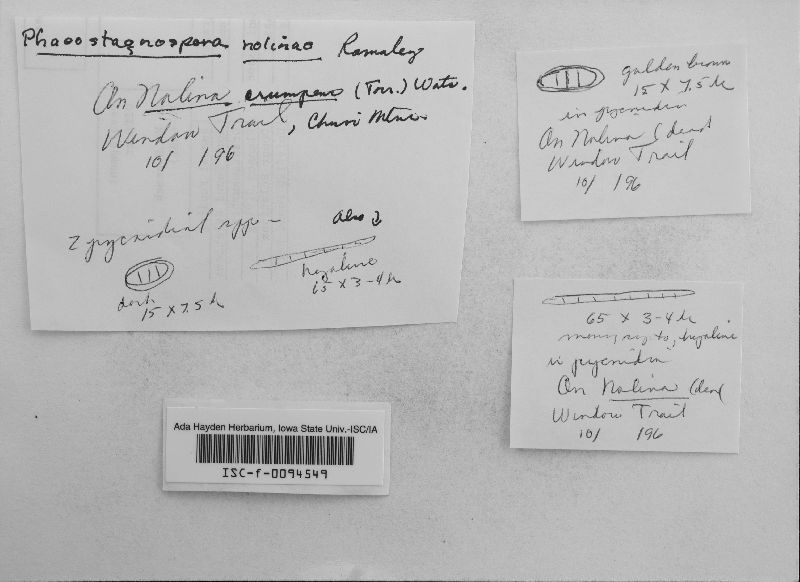 Phaeostagnospora nolinae Ramaley
On Nolina erumpens (Torr.) Wats.
Window Trail, Chisos Mtns
10/ /96
2 pycnidial spp – Also
dark
15 x 7.5 µ
hyaline
65 x 3-4 µ
golden brown
15 x 7.5 µ
in pycnidia
On Nolina (dead
Window Trail
10/ /96
65 x 3-4 µ
hyaline
in pycnidia
On Nolina (dead
Window Trail
10/ /96
Ada Hayden Herbarium, Iowa State Univ.-ISC/IA
ISC-f-0094549